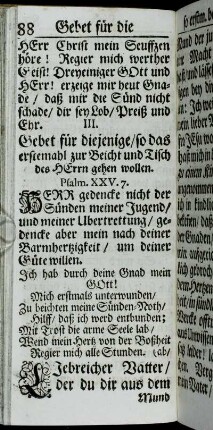 88 Gebet für die
HErr Christ mein Seuffzen
höre! Regier mich werther
Geist! Dreyeiniger GOtt und
HErr! erzeige mir heut Gna-
de / daß mir die Sünd nicht
schade / dir sey Lob / Preiß und
Ehr.
III.
Gebet für diejenige / so das
erstemahl zur Beicht und Tisch
des HErrn gehen wollen.
Psalm. XXV. 7.
HERR gedencke nicht der
Sünden meiner Jugend /
und meiner Ubertrettung / ge-
dencke aber mein nach deiner
Barmhertzigkeit / um deiner
Güte willen.
Ich hab durch deine Gnad mein
GOtt!
Mich erstmals unterwunden /
Zu beichten meine Sünden-Noth /
Hilff / daß ich werd entbunden;
Mit Trost die arme Seele lab /
Wend mein Hertz von der Boßheit
Regier mich alle Stunden. (ab /
LIebreicher Vatter /
der du dir aus dem
Mund